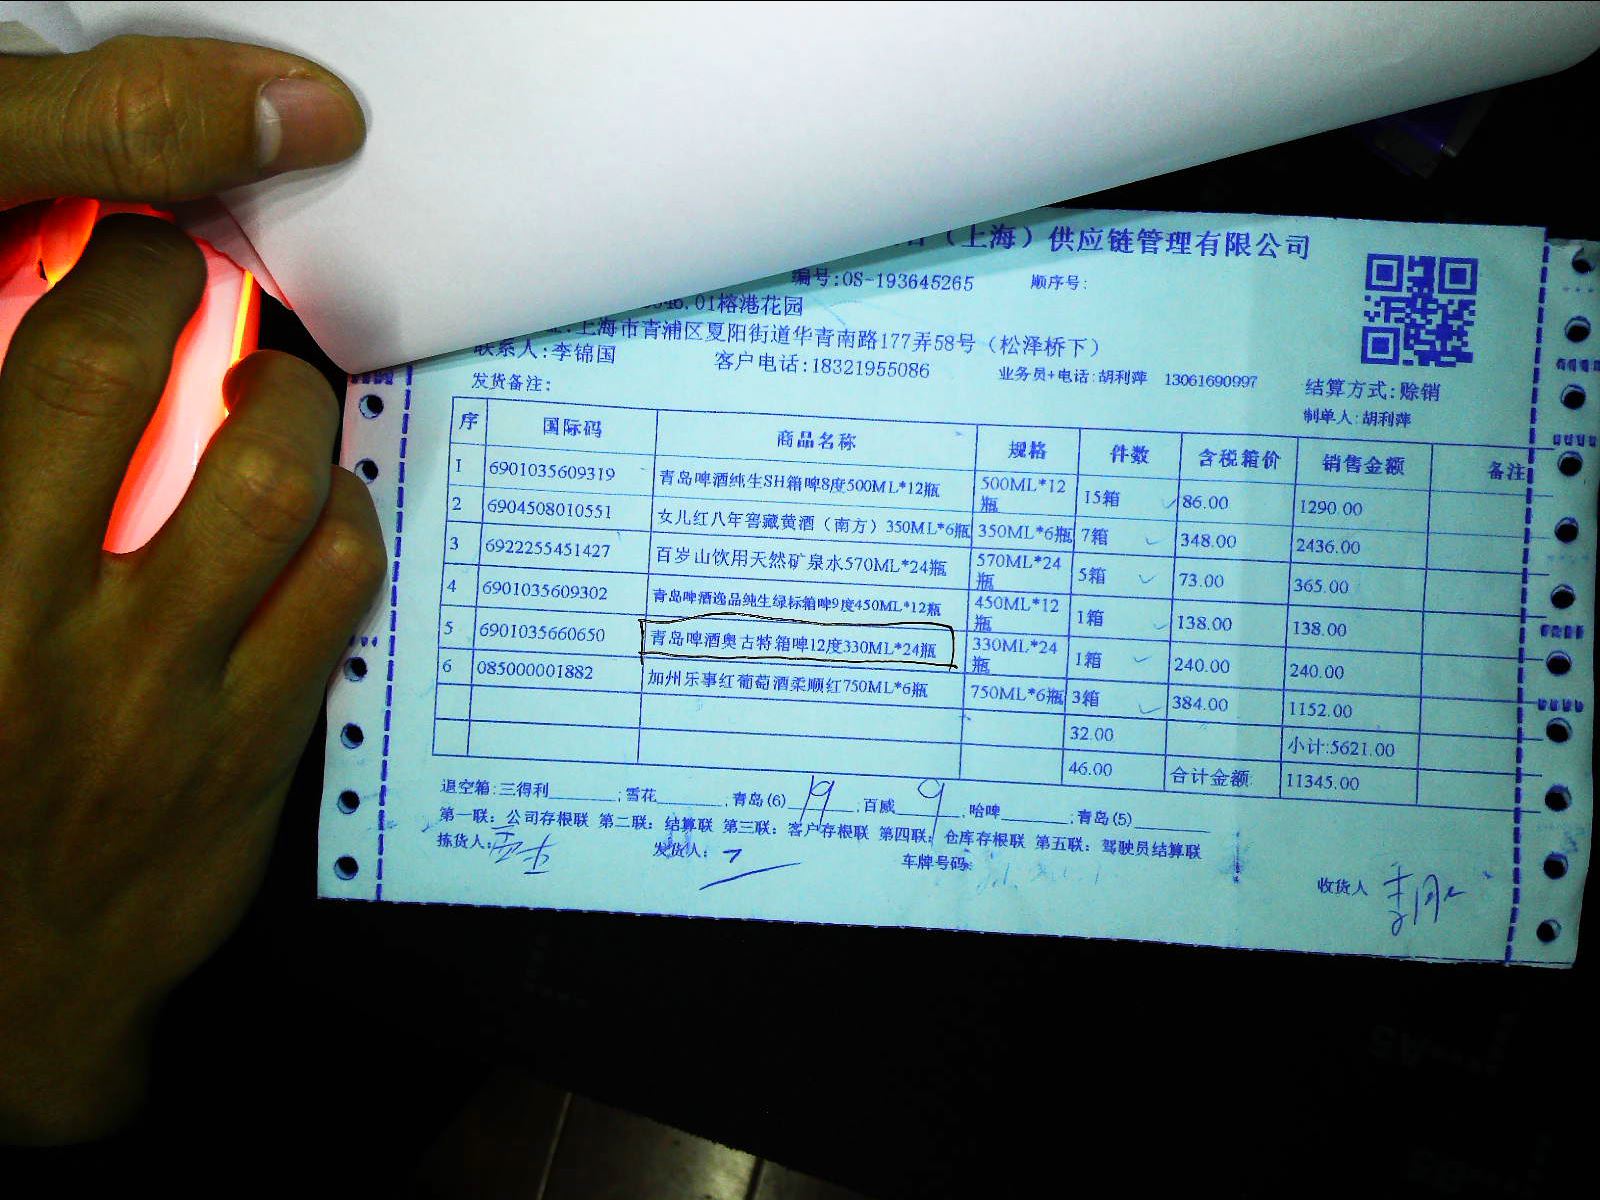 （上海）供应链管理有限公司
编号:OS-193645265 顺序号:
01榕港花园
上海市青浦区夏阳街道华青南路177弄58号（松泽桥下）
联系人:李锦国 客户电话:18321955086 业务员+电话:胡利萍 13061690997 结算方式:赊销
发货备注: 制单人:胡利萍
序 国际码 商品名称 规格 件数 含税箱价 销售金额 备注
1 6901035609319 青岛啤酒纯生SH箱啤8度500ML*12瓶 500ML*12瓶 15箱 86.00 1290.00
2 6904508010551 女儿红八年窖藏黄酒（南方）350ML*6瓶 350ML*6瓶 7箱 348.00 2436.00
3 6922255451427 百岁山饮用天然矿泉水570ML*24瓶 570ML*24瓶 5箱 73.00 365.00
4 6901035609302 青岛啤酒逸品纯生绿标箱啤9度450ML*12瓶 450ML*12瓶 1箱 138.00 138.00
5 6901035660650 青岛啤酒奥古特箱啤12度330ML*24瓶 330ML*24瓶 1箱 240.00 240.00
6 085000001882 加州乐事红葡萄酒柔顺红750ML*6瓶 750ML*6瓶 3箱 384.00 1152.00
32.00 小计:5621.00
46.00 合计金额: 11345.00
退空箱:三得利______;雪花______,青岛(6) 19 ;百威 9 ,哈啤______;青岛(5)______
第一联：公司存根联 第二联：结算联 第三联：客户存根联 第四联：仓库存根联 第五联：驾驶员结算联
拣货人: 发货人: 车牌号码:
收货人